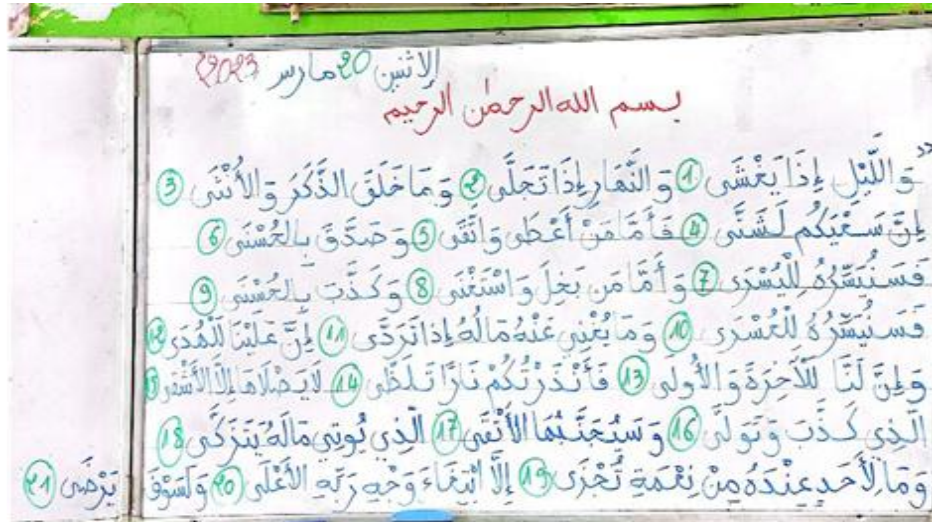 الإثنين 20 مارس 2023
بسم الله الرحمٰن الرحيم
«وَاللَّيْلِ إِذَا يَغْشَى ① وَالنَّهَارِ إِذَا تَجَلَّى ② وَمَا خَلَقَ الذَّكَرَ وَالأُنْثَى ③
إِنَّ سَعْيَكُم لَشَتَّى ④ فَأَمَّا مَنْ أَعْطَى وَاتَّقَى ⑤ وَصَدَّقَ بِالحُسْنَى ⑥
فَسَنُيَسِّرُهُ لِلْيُسْرَى ⑦ وَأَمَّا مَن بَخِلَ وَاسْتَغْنَى ⑧ وَكَذَّبَ بِالحُسْنَى ⑨
فَسَنُيَسِّرُهُ لِلْعُسْرَى ⑩ وَمَا يُغْنِي عَنْهُ مَالُهُ إِذَا تَرَدَّى ⑪ إِنَّ عَلَيْنَا لَلْهُدَى ⑫
وَإِنَّ لَنَا لَلْآخِرَةَ وَالأُولَى ⑬ فَأَنْذَرْتُكُمْ نَارًا تَلَظَّى ⑭ لَا يَصْلَاهَا إِلَّا الأَشْقَى ⑮
الَّذِي كَذَّبَ وَتَوَلَّى ⑯ وَسَيُجَنَّبُهَا الأَتْقَى ⑰ الَّذِي يُوتِي مَالَهُ يَتَزَكَّى ⑱
وَمَا لِأَحَدٍ عِنْدَهُ مِنْ نِعْمَةٍ تُجْزَى ⑲ إِلَّا ابْتِغَاءَ وَجْهِ رَبِّهِ الأَعْلَى ⑳ وَلَسَوْفَ يَرْضَى ㉑